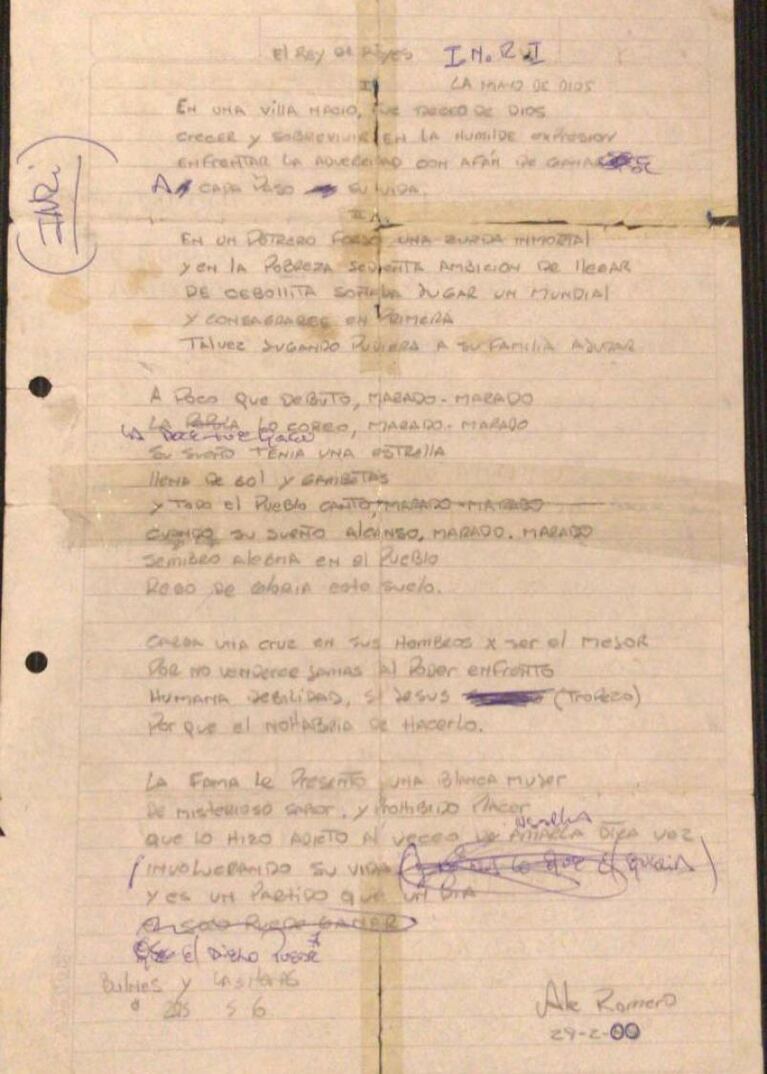 El Rey de Reyes I.N.R.I
I
LA MANO DE DIOS
EN UNA VILLA NACIO, FUE DESEO DE DIOS
CRECER Y SOBREVIVIR EN LA HUMILDE EXPRESION
ENFRENTAR LA ADVERCIDAD CON AFÁN DE
A CADA PASO SU VIDA.
(INRi)
II
EN UN POTRERO FORJO UNA ZURDA INMORTAL
Y EN LA POBREZA SEDIENTA AMBICION DE LLEGAR
DE CEBOLLITA SOÑABA JUGAR UN MUNDIAL
Y CONSAGRARCE EN PRIMERA
TALVEZ JUGANDO PUDIERA A SU FAMILIA AYUDAR
A POCO QUE DEBUTO, MARADO - MARADO
LA LO COREO, MARADO - MARADO
LA Doce fue quien
SU SUEÑO TENIA UNA ESTRELLA
LLENA DE GOL Y GAMBETAS
Y TODO EL PUEBLO CANTO, MARADO - MARADO
CUANDO SU SUEÑO ALCANSO, MARADO. MARADO
SEMBRO ALEGRIA EN EL PUEBLO
REGO DE GLORIA ESTE SUELO.
CARGA UNA CRUZ EN SUS HOMBROS X SER EL MEJOR
POR NO VENDERCE JAMAS AL PODER ENFRENTO
HUMANA DEBILIDAD, SI JESUS (TROPEZO)
POR QUE EL NO HABRIA DE HACERLO.
LA FAMA LE PRESENTO UNA BLANCA MUJER
DE MISTERIOSO SABOR, Y PROHIBIDO PLACER
QUE LO HIZO ADICTO AL DE
INVOLUCRANDO SU VIDA
Y ES UN PARTIDO QUE UN DIA
EL SOLO PUEDE GANAR
El Diego
y LAS HERAS
205 5 6
Ale Romero
29-2-00